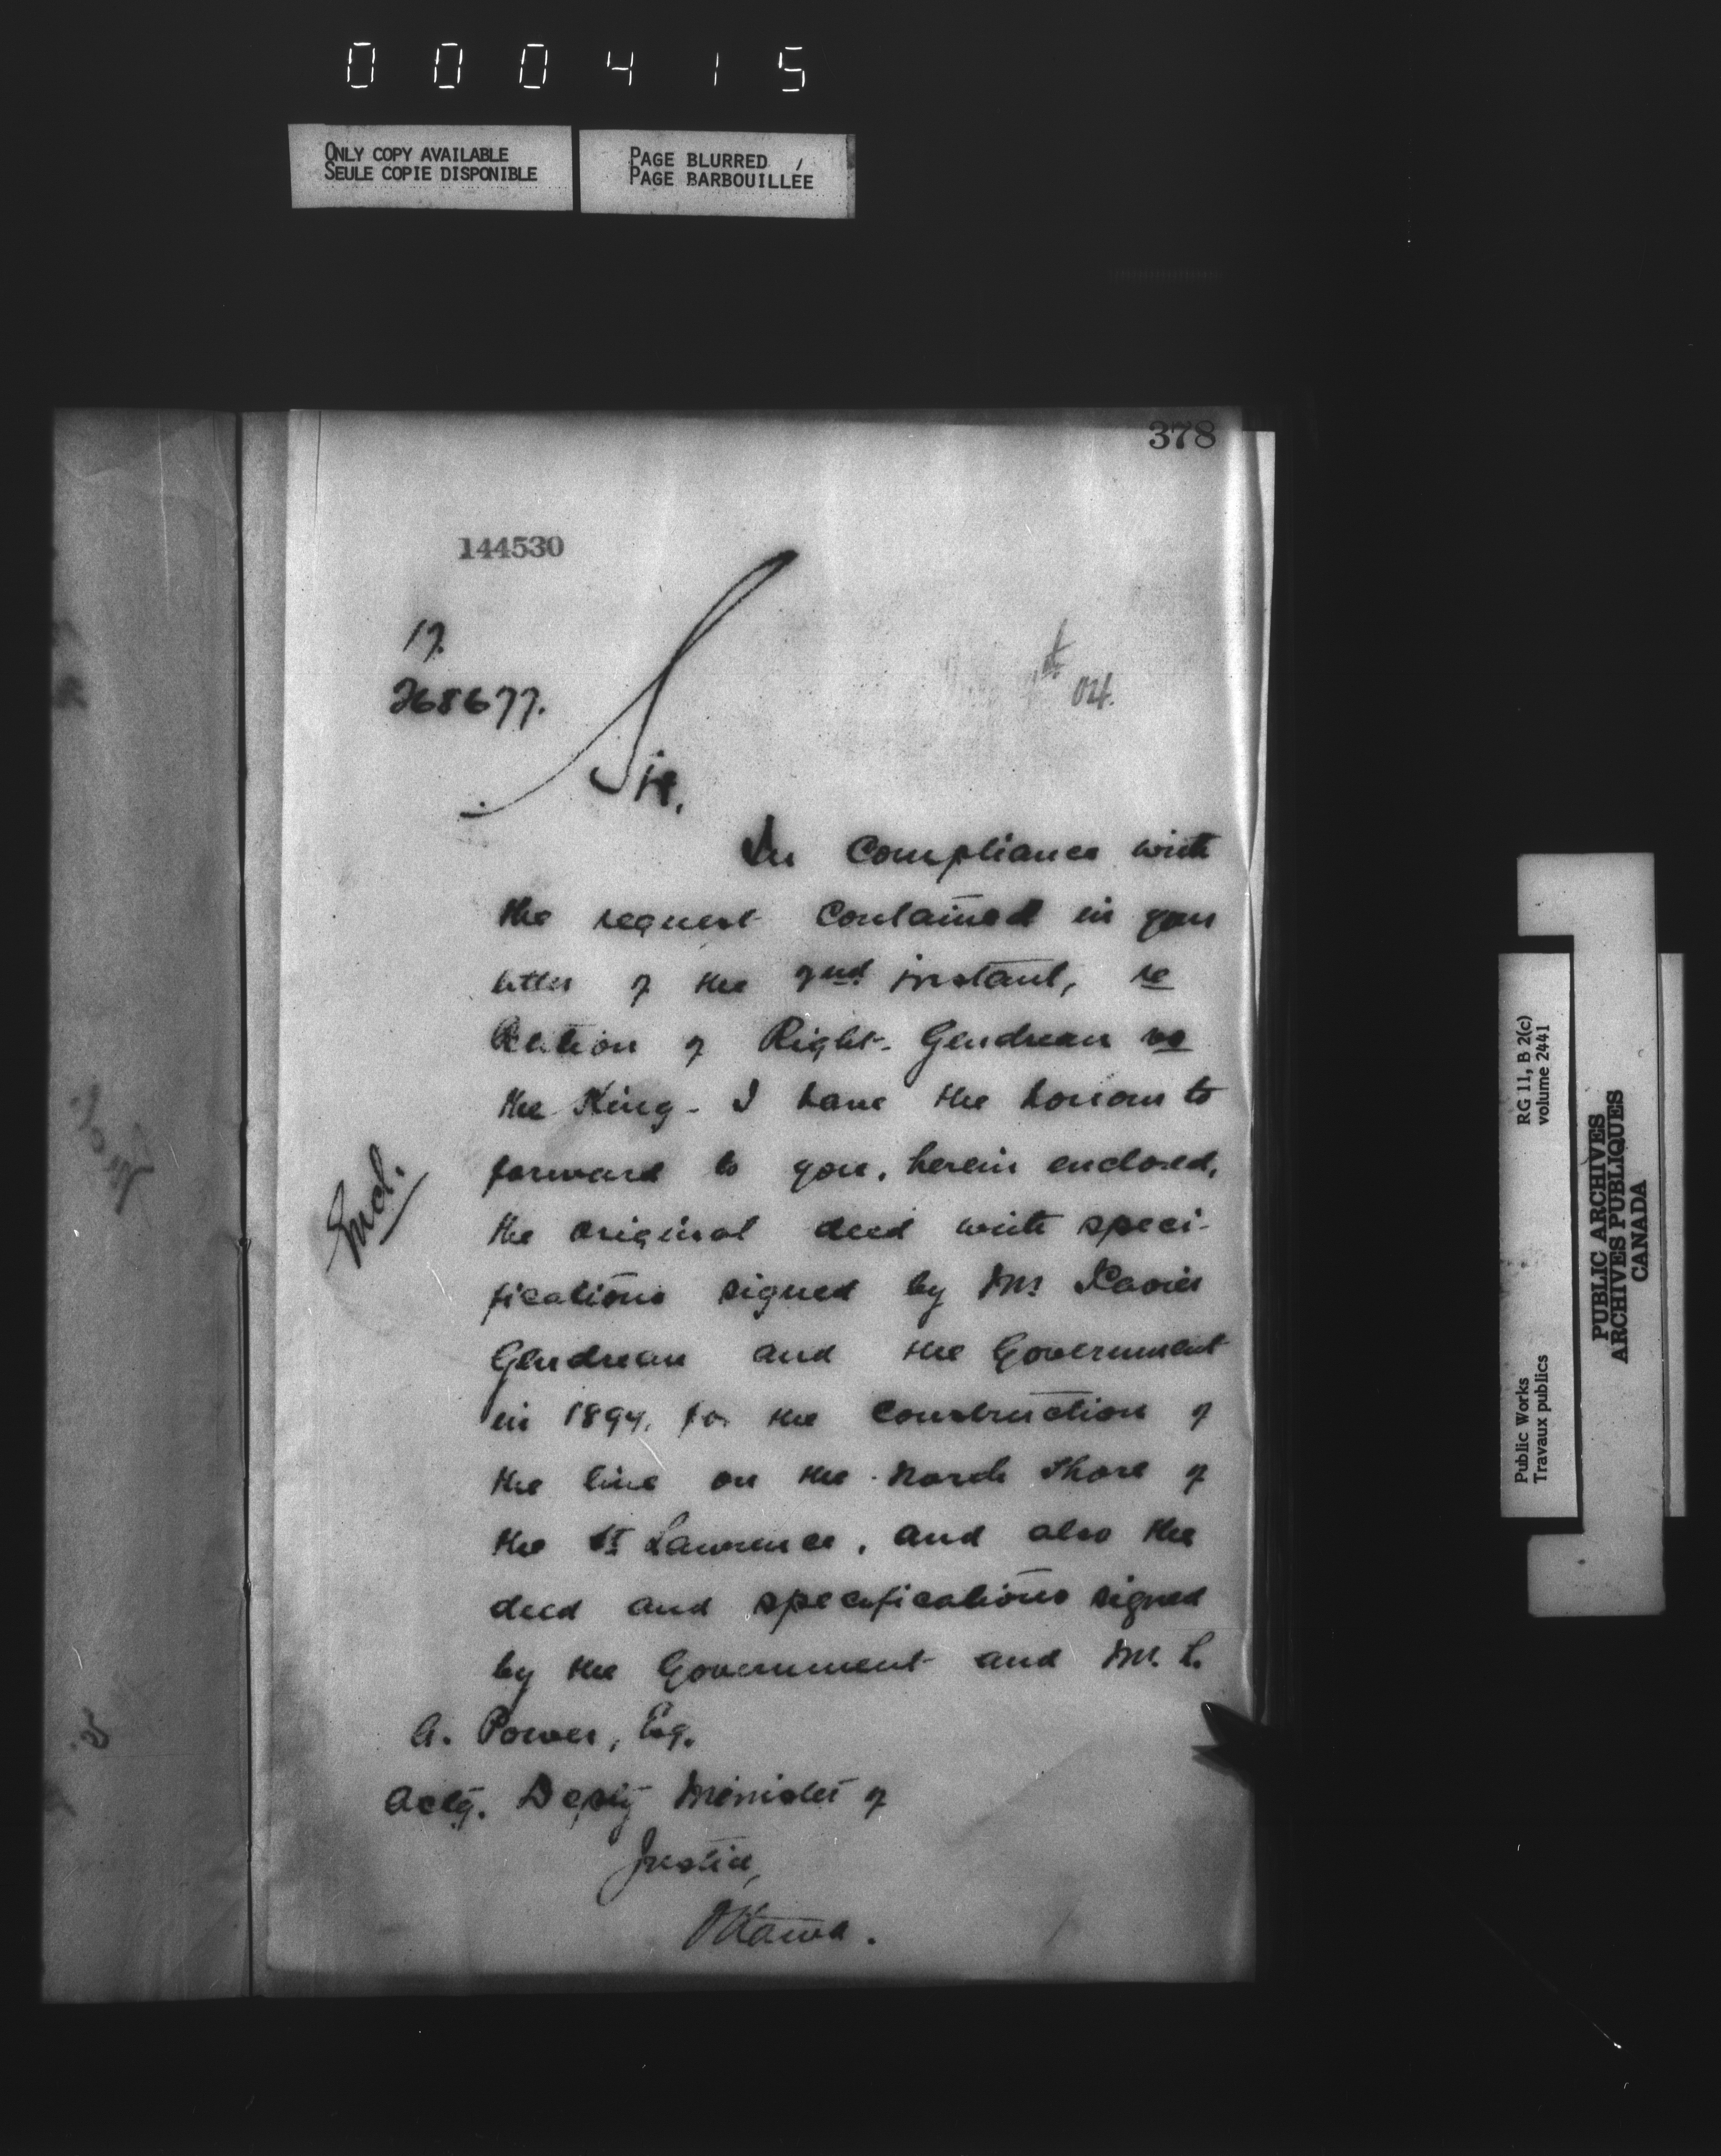 000415
ONLY COPY AVAILABLE
SEULE COPIE DISPONIBLE
PAGE BLURRED
PAGE BARBOUILLÉE
378
144530
17.
268677.
04.
Sir,
In compliance with
the request contained in your
letter of the 2nd instant, re
Petition of Right - Gendreau vs
the King - I have the honour to
forward to you, herein enclosed,
the original deed with speci-
fications signed by Mr Xavier
Gendreau and the Government
in 1894, for the construction of
the line on the North Shore of
the St Lawrence, and also the
deed and specifications signed
by the Government and Mr. L.
Encl.
A. Power, Esq.
Actg. Depty Minister of
Justice,
Ottawa.
RG 11, B 2(c)
volume 2441
Public Works
Travaux publics
PUBLIC ARCHIVES
ARCHIVES PUBLIQUES
CANADA